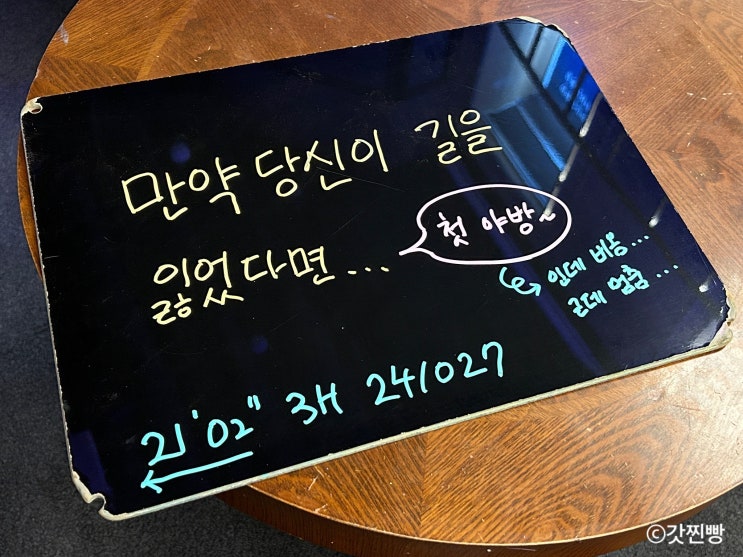 만약 당신이 길을
잃었다면...
첫 야방~
인데 비옴...
근데 멈춤...
21'02" 3H 241027
©갓찐빵